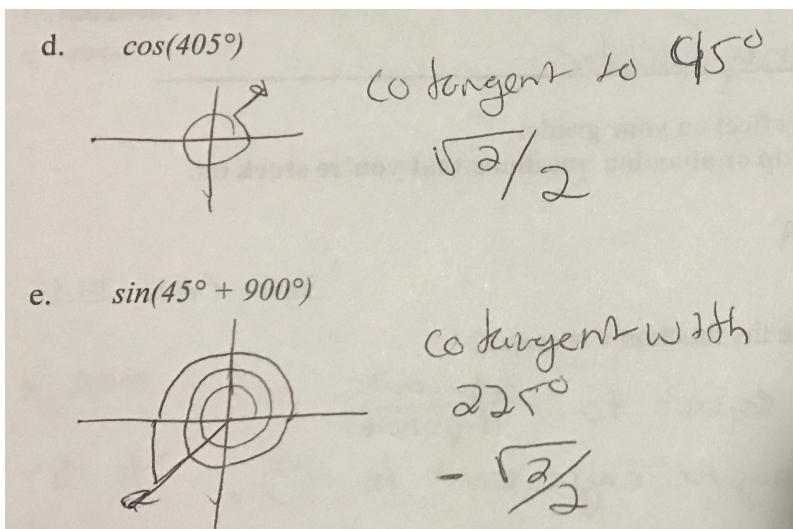 d. cos(405°)
cotangent to 45°
√2/2
e. sin(45° + 900°)
cotangent with
225°
-√2/2